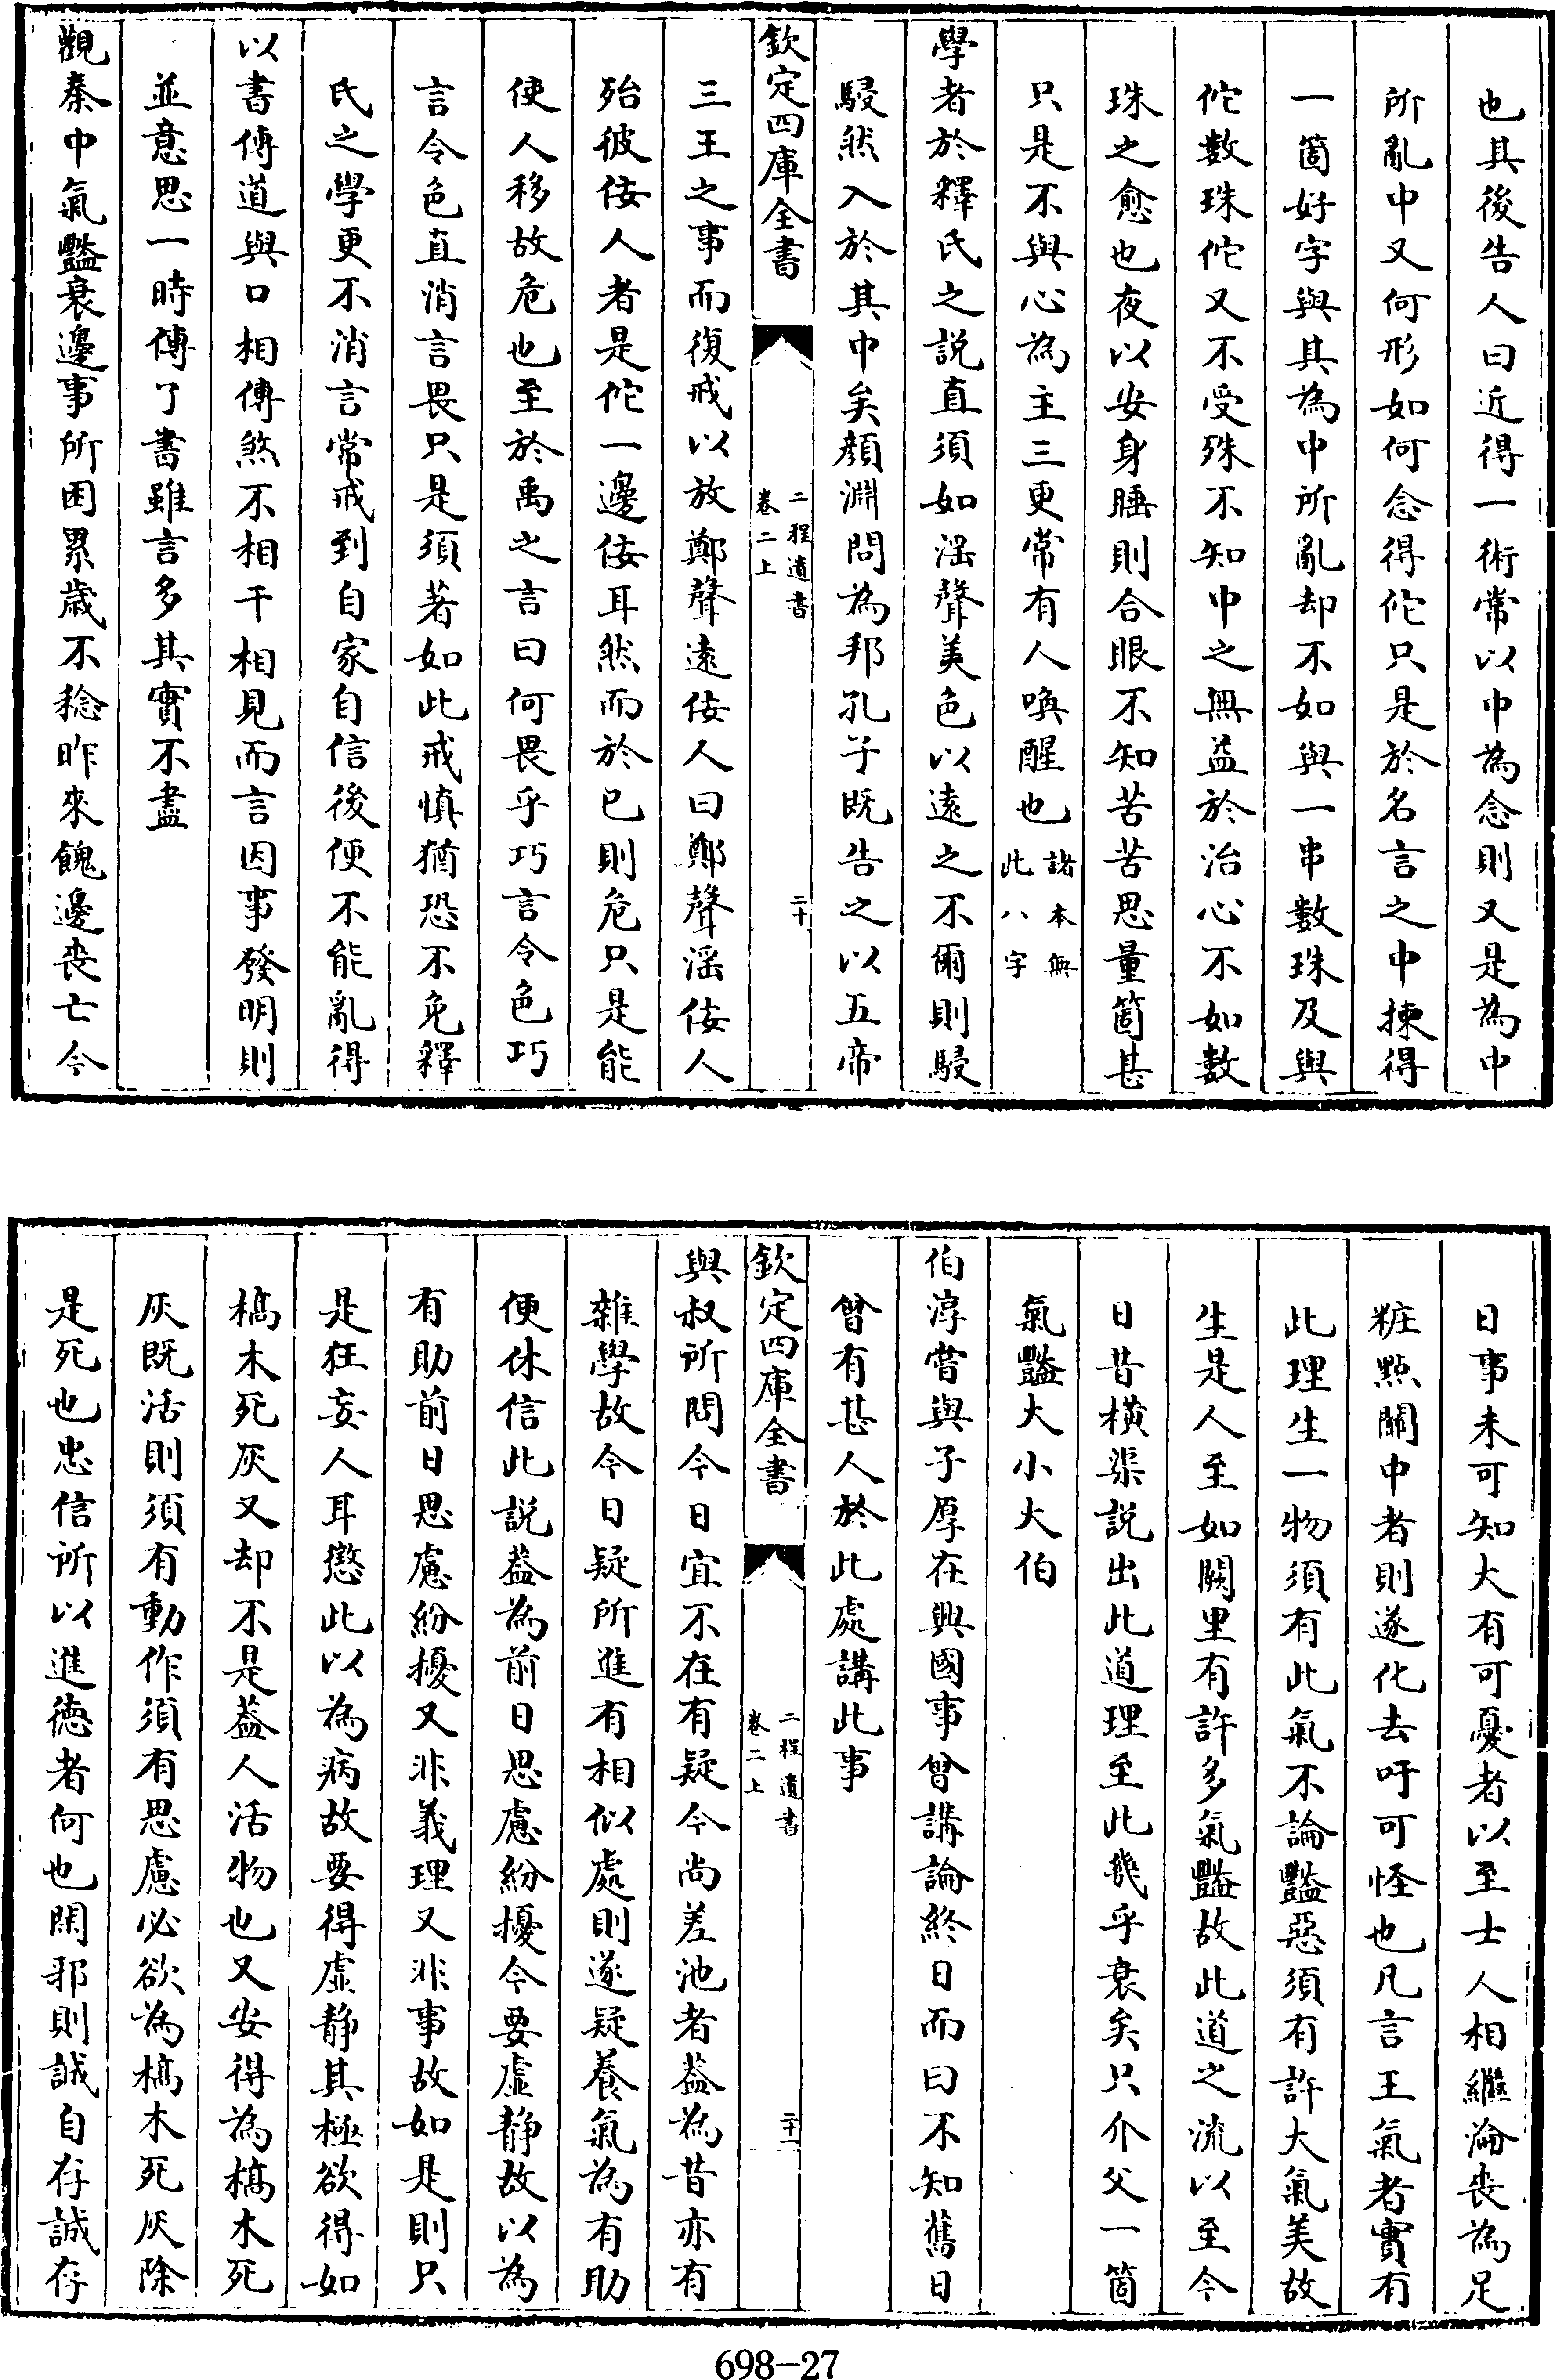 也其後告人曰近得一術常以中為念則又是為中
所亂中又何形如何念得佗只是於名言之中揀得
一箇好字與其為中所亂却不如與一串數珠及與
佗數珠佗又不受殊不知中之無益於治心不如數
珠之愈也夜以安身睡則合眼不知苦苦思量箇甚
只是不與心為主三更常有人喚醒也諸本無此八字
學者於釋氏之説直須如淫聲美色以遠之不爾則駸
駸然入於其中矣顔淵問為邦孔子既告之以五帝
欽定四庫全書
二程遺書
卷二上
二十
三王之事而復戒以放鄭聲遠佞人曰鄭聲淫佞人
殆彼佞人者是佗一邊佞耳然而於已則危只是能
使人移故危也至於禹之言曰何畏乎巧言令色巧
言令色直消言畏只是須著如此戒慎猶恐不免釋
氏之學更不消言常戒到自家自信後便不能亂得
以書傳道與口相傳煞不相干相見而言因事發明則
並意思一時傳了書雖言多其實不盡
觀秦中氣豔衰邊事所困累歳不稔昨來餽邊喪亡今
日事未可知大有可憂者以至士人相繼淪喪為足
粧點關中者則遂化去吁可怪也凡言王氣者實有
此理生一物須有此氣不論豔惡須有許大氣美故
生是人至如闕里有許多氣豔故此道之流以至今
日昔橫渠説出此道理至此幾乎衰矣只介父一箇
氣豔大小大伯
伯淳嘗與子厚在興國寺曾講論終日而曰不知舊日
曾有甚人於此處講此事
欽定四庫全書
二程遺書
卷二上
二十一
與叔所問今日宜不在有疑今尚差池者葢為昔亦有
雜學故今日疑所進有相似處則遂疑養氣為有助
便休信此説葢為前日思慮紛擾今要虛静故以為
有助前日思慮紛擾又非義理又非事故如是則只
是狂妄人耳懲此以為病故要得虛静其極欲得如
槁木死灰又却不是葢人活物也又安得為槁木死
灰既活則須有動作須有思慮必欲為槁木死灰除
是死也忠信所以進德者何也閑邪則誠自存誠存
698-27